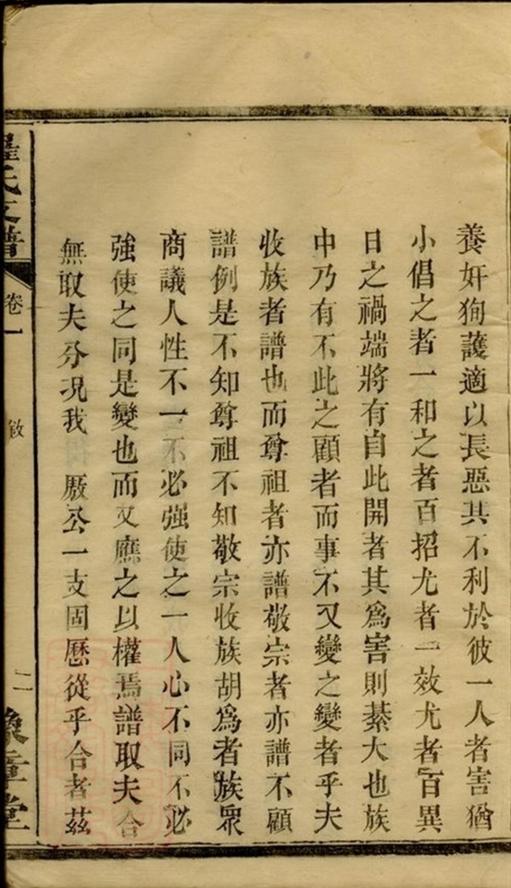 養奸狥護適以長惡其不利於彼一人者害猶
小倡之者一和之者百招尤者一效尤者百異
日之禍端將有自此開者其爲害則綦大也族
中乃有不此之顧者而事不又變之變者乎夫
收族者譜也而尊祖者亦譜敬宗者亦譜不顧
譜例是不知尊祖不知敬宗收族胡爲者族衆
商議人性不一不必強使之一人心不同不必
強使之同是變也而又應之以權焉譜取夫合
無取夫分况我 厫公一支固歷從乎合者茲
氏支譜 卷一 敘 二 豫章堂